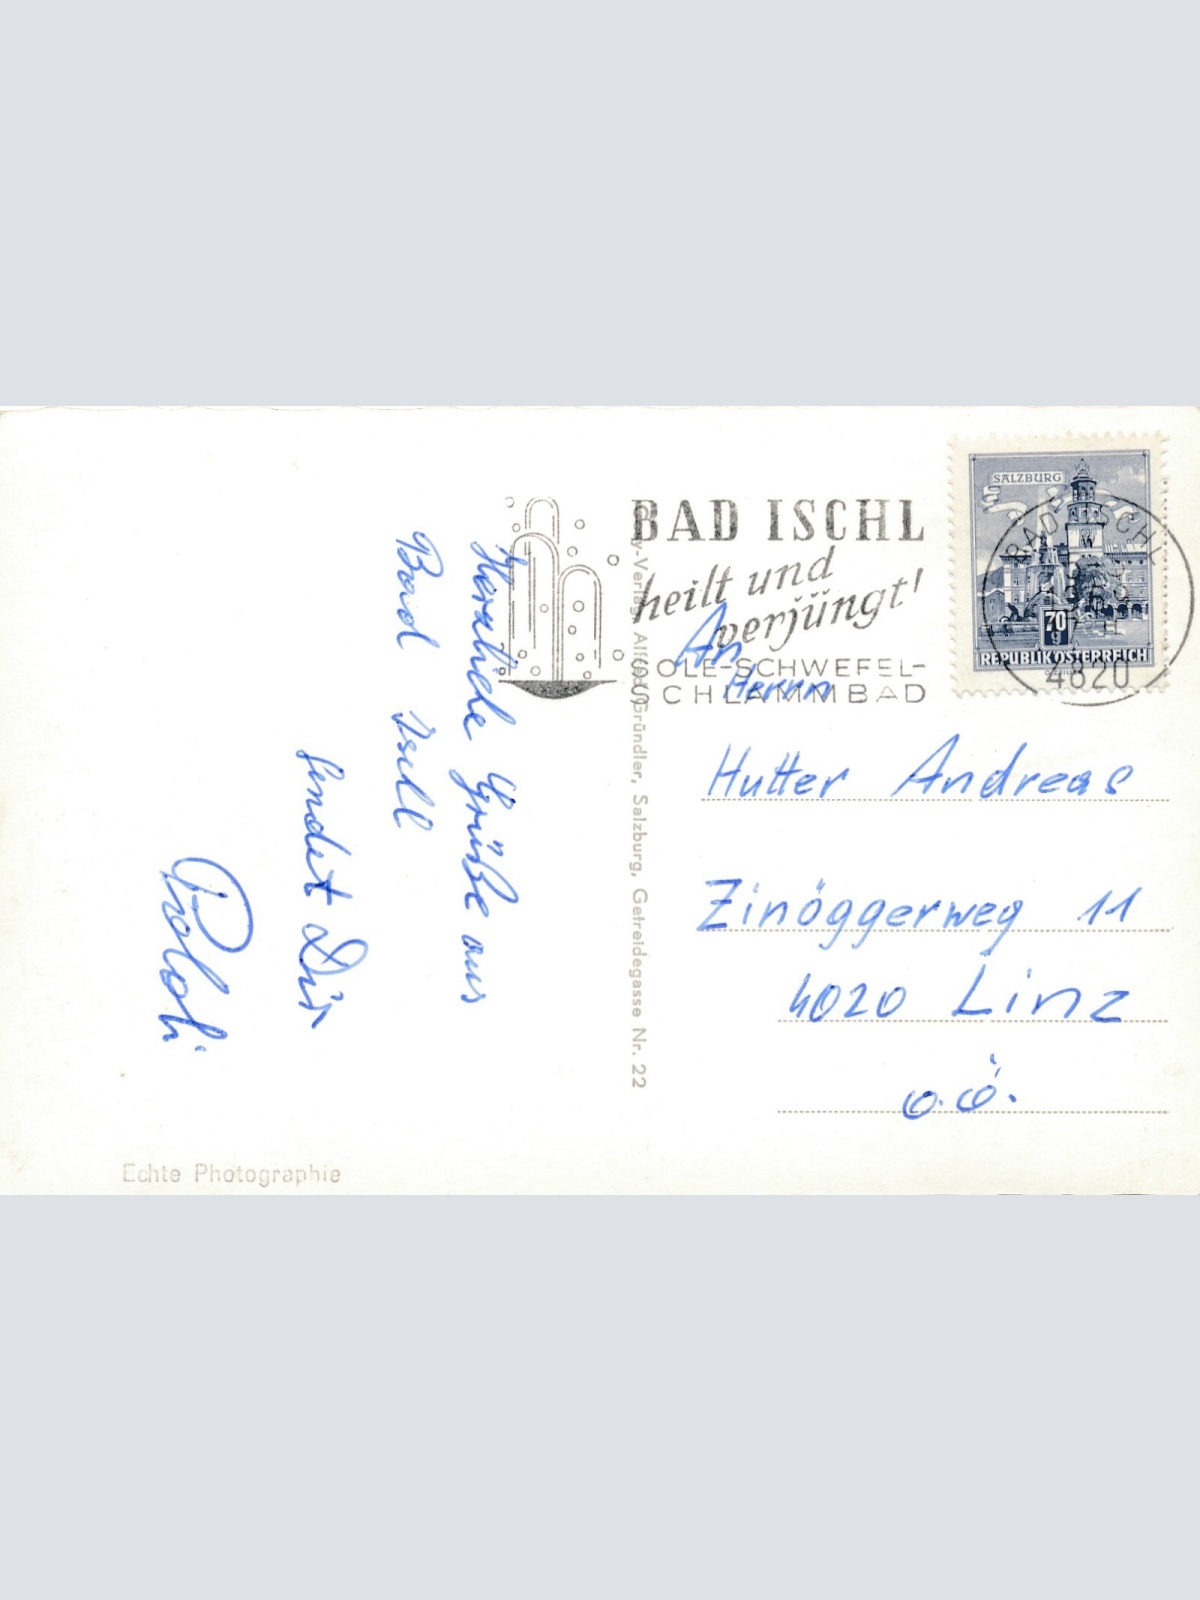 Herzliche Grüße aus
Bad Ischl
sendet Dir
BAD ISCHL
heilt und
verjüngt!
SOLE-SCHWEFEL-
SCHLAMMBAD
SALZBURG
70
g
REPUBLIK ÖSTERREICH
BAD ISCHL
4820
y-Verlag Alfred Gründler, Salzburg, Getreidegasse Nr. 22
An
Herrn
Hutter Andreas
Zinöggerweg 11
4020 Linz
O.Ö.
Echte Photographie